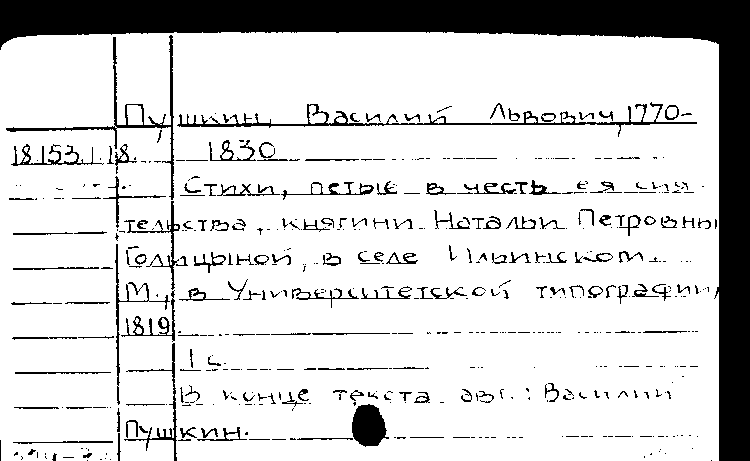 Пушкин, Василий Львович, 1770-
18.153.1.18. 1830
Стихи, петые в честь ея сия
тельства, княгини Натальи Петровны
Голицыной, в селе Ильинском.
М., в Университетской типографии,
1819.
1 с.
В конце текста авт.: Василий
Пушкин.